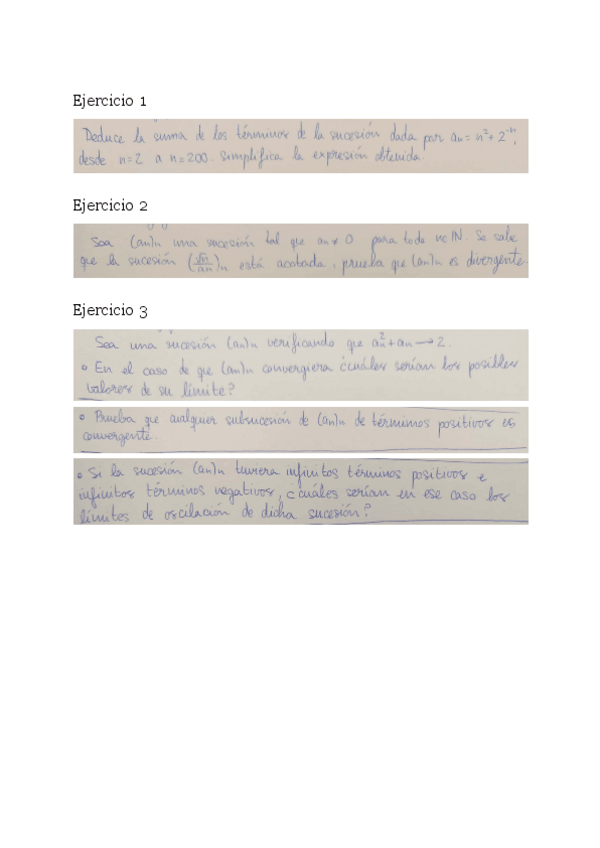 Ejercicio 1
Deduce la suma de los términos de la sucesión dada por an = n² + 2⁻ⁿ,
desde n=2 a n=200. Simplifica la expresión obtenida.
Ejercicio 2
Sea (an)n una sucesión tal que an ≠ 0 para todo n∈ℕ. Se sabe
que la sucesión (√n/an)n está acotada, prueba que (an)n es divergente.
Ejercicio 3
Sea una sucesión (an)n verificando que an² + an → 2.
• En el caso de que (an)n convergiera ¿cuáles serían los posibles
valores de su límite?
• Prueba que cualquier subsucesión de (an)n de términos positivos es
convergente.
• Si la sucesión (an)n tuviera infinitos términos positivos e
infinitos términos negativos, ¿cuáles serían en ese caso los
límites de oscilación de dicha sucesión?